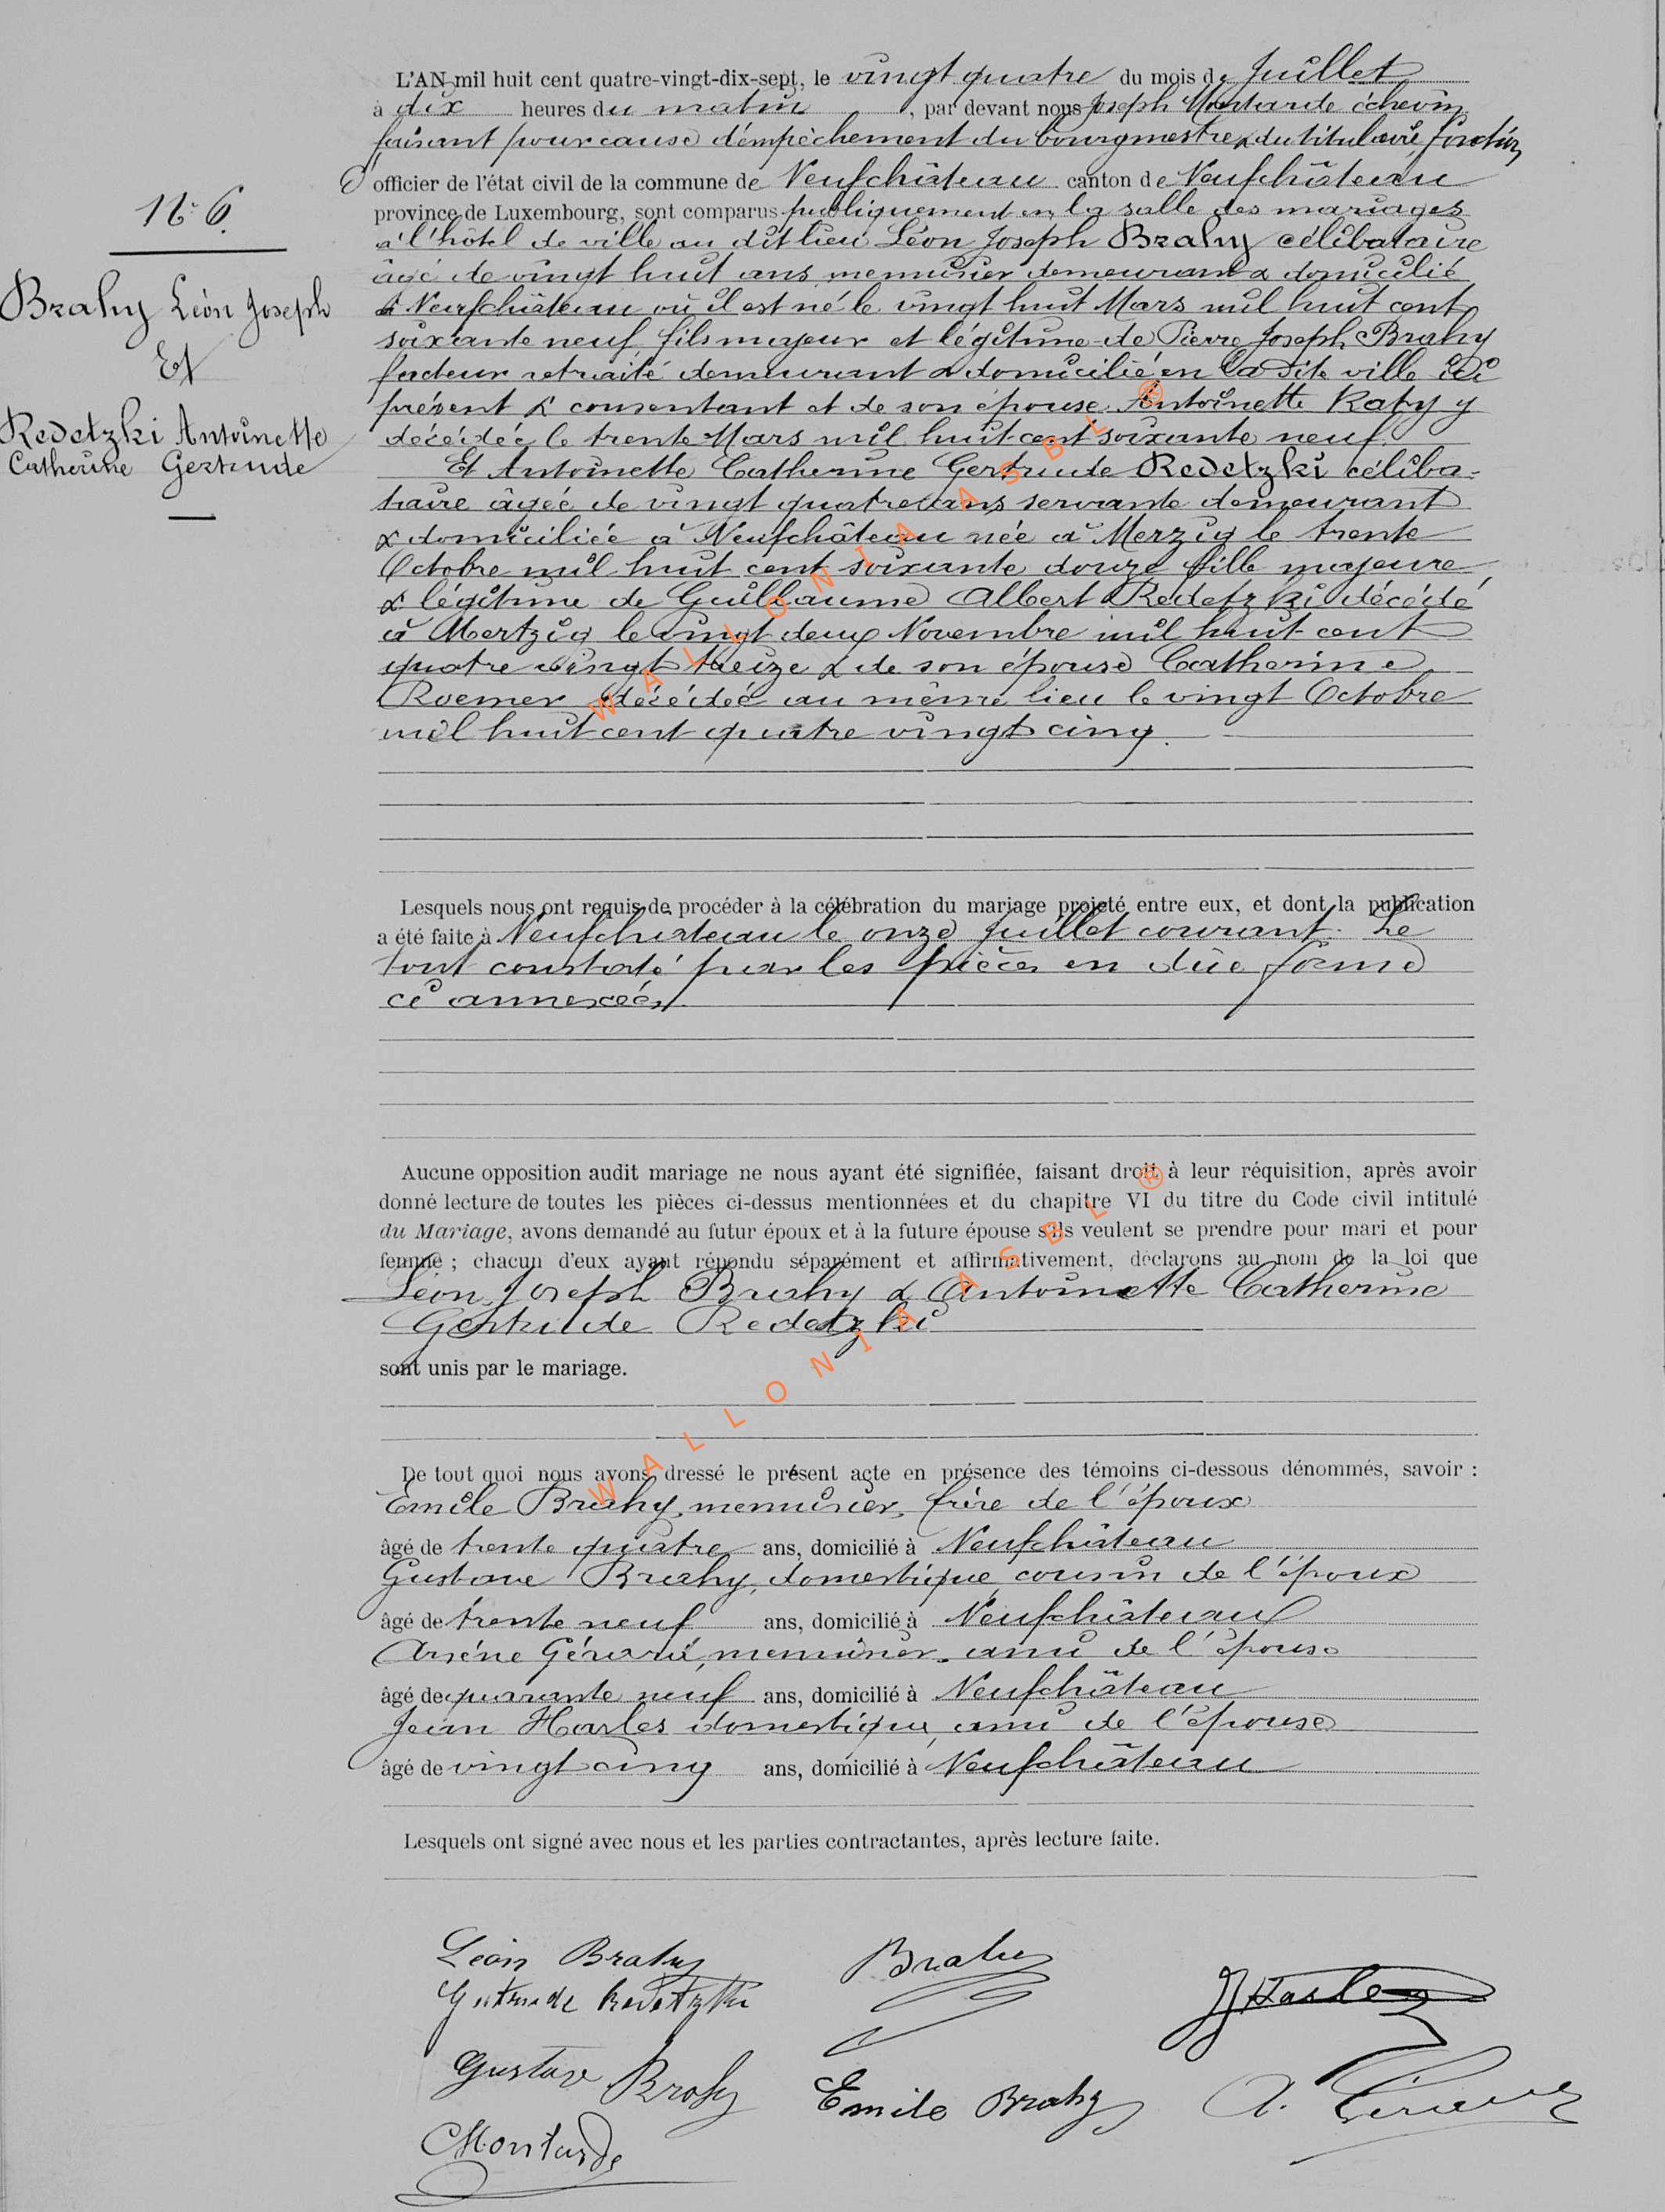 L'AN mil huit cent quatre-vingt-dix-sept, le vingt quatre du mois de Juillet
à dix heures du matin, par devant nous Joseph Montarde échevin
faisant pour cause d'empêchement du bourgmestre & du titulaire, fonction
d'officier de l'état civil de la commune de Neufchâteau canton de Neufchâteau
province de Luxembourg, sont comparus publiquement en la salle des mariages
à l'hôtel de ville au dit lieu Léon Joseph Brahy célibataire
âgé de vingt huit ans menuisier demeurant & domicilié
à Neufchâteau où il est né le vingt huit Mars mil huit cent
soixante neuf fils majeur et légitime de Pierre Joseph Brahy
facteur retraité demeurant & domicilié en la dite ville ici
présent & consentant et de son épouse Antoinette Katy y
décédée le trente Mars mil huit cent soixante neuf.
Et Antoinette Catherine Gertrude Redetzki céliba-
taire âgée de vingt quatre ans servante demeurant
& domiciliée à Neufchâteau née à Merzig le trente
Octobre mil huit cent soixante douze fille majeure
& légitime de Guillaume Albert Redetzki décédé
à Mertzig le vingt deux Novembre mil huit cent
quatre vingt treize & de son épouse Catherine
Roemer décédée au même lieu le vingt Octobre
mil huit cent quatre vingt cinq.
N° 6.
Brahy Léon Joseph
Et
Redetzki Antoinette
Catherine Gertrude
Lesquels nous ont requis de procéder à la célébration du mariage projeté entre eux, et dont la publication
a été faite à Neufchâteau le onze Juillet courant. Le
tout constaté par les pièces en dûe forme
ci annexées.
Aucune opposition audit mariage ne nous ayant été signifiée, faisant droit à leur réquisition, après avoir
donné lecture de toutes les pièces ci-dessus mentionnées et du chapitre VI du titre du Code civil intitulé
du Mariage, avons demandé au futur époux et à la future épouse s'ils veulent se prendre pour mari et pour
femme ; chacun d'eux ayant répondu séparément et affirmativement, déclarons au nom de la loi que
Léon Joseph Brahy & Antoinette Catherine
Gertrude Redetzki
sont unis par le mariage.
De tout quoi nous avons dressé le présent acte en présence des témoins ci-dessous dénommés, savoir :
Emile Brahy, menuisier, frère de l'époux
âgé de trente quatre ans, domicilié à Neufchâteau
Gustave Brahy, domestique, cousin de l'époux
âgé de trente neuf ans, domicilié à Neufchâteau
Arsène Gérard, menuisier, ami de l'épouse
âgé de quarante neuf ans, domicilié à Neufchâteau
Jean Harles domestique, ami de l'épouse
âgé de vingt cinq ans, domicilié à Neufchâteau
Lesquels ont signé avec nous et les parties contractantes, après lecture faite.
Léon Brahy
Brahy
Gertrude Redetzki
J Harles
Gustave Brahy
Emile Brahy
A. Gérard
Montarde
WALLONIA ASBL ®
WALLONIA ASBL ®